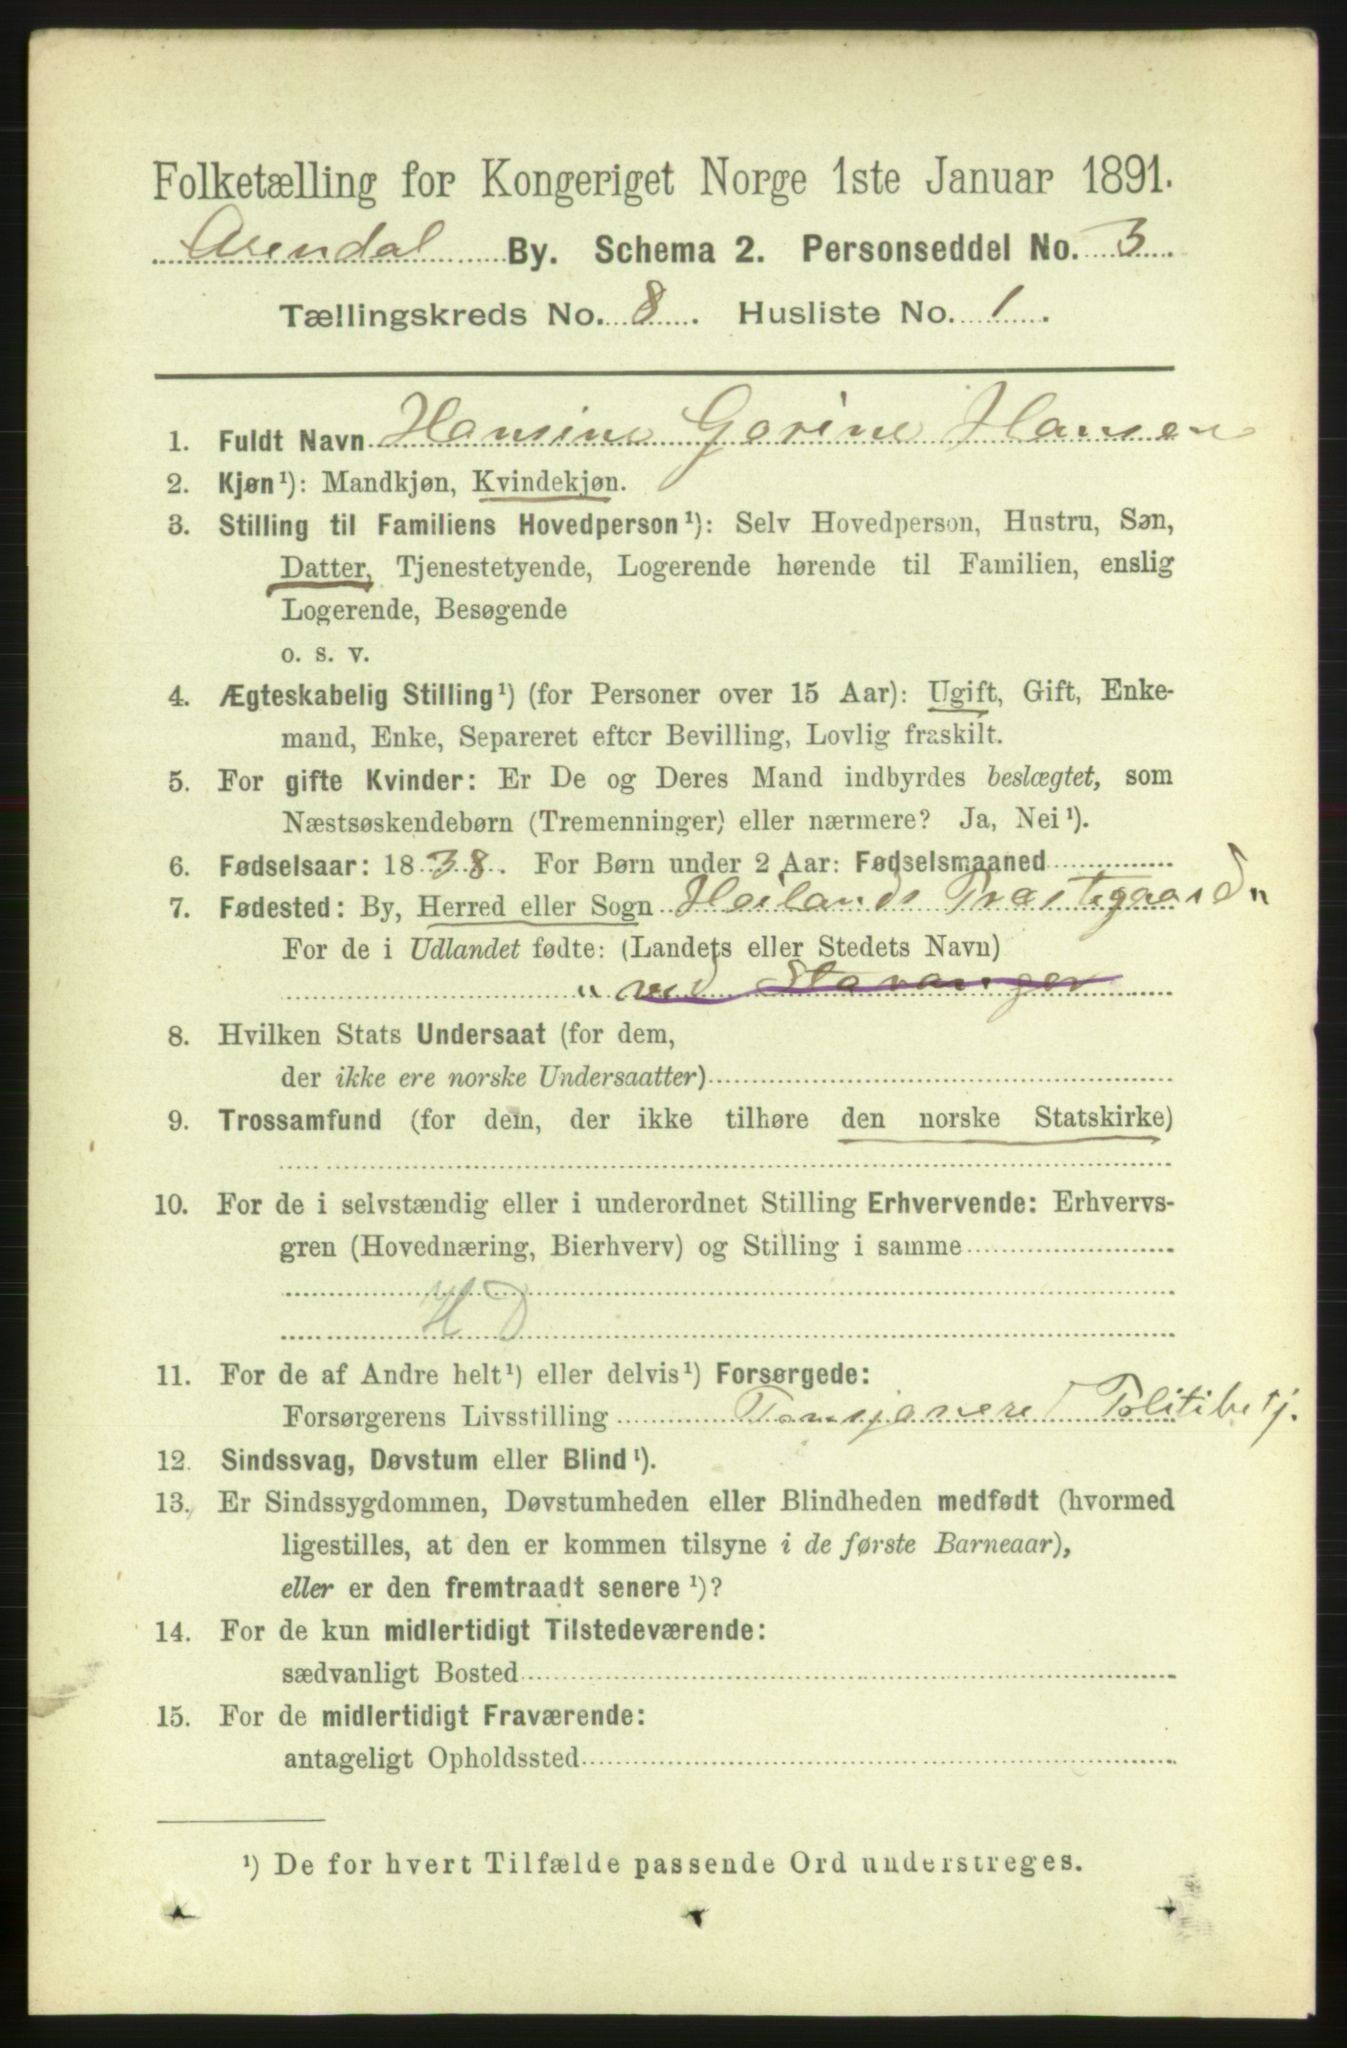 Folketælling for Kongeriget Norge 1ste Januar 1891.
Arendal By. Schema 2. Personseddel No. 3.
Tællingskreds No. 8. Husliste No. 1.
1. Fuldt Navn Hansine Gorine Hansen
2. Kjøn¹): Mandkjøn, Kvindekjøn.
3. Stilling til Familiens Hovedperson¹): Selv Hovedperson, Hustru, Søn,
Datter, Tjenestetyende, Logerende hørende til Familien, enslig
Logerende, Besøgende
o. s. v.
4. Ægteskabelig Stilling¹) (for Personer over 15 Aar): Ugift, Gift, Enke-
mand, Enke, Separeret efter Bevilling, Lovlig fraskilt.
5. For gifte Kvinder: Er De og Deres Mand indbyrdes beslægtet, som
Næstsøskendebørn (Tremenninger) eller nærmere? Ja, Nei¹).
6. Fødselsaar: 1838. For Børn under 2 Aar: Fødselsmaaned
7. Fødested: By, Herred eller Sogn Heilands Præstegaard
For de i Udlandet fødte: (Landets eller Stedets Navn)
" ved Stavanger
8. Hvilken Stats Undersaat (for dem,
der ikke ere norske Undersaatter)
9. Trossamfund (for dem, der ikke tilhøre den norske Statskirke)
10. For de i selvstændig eller i underordnet Stilling Erhvervende: Erhvervs-
gren (Hovednæring, Bierhverv) og Stilling i samme
H D
11. For de af Andre helt¹) eller delvis¹) Forsørgede:
Forsørgerens Livsstilling Politibetj.
12. Sindssvag, Døvstum eller Blind¹).
13. Er Sindssygdommen, Døvstumheden eller Blindheden medfødt (hvormed
ligestilles, at den er kommen tilsyne i de første Barneaar),
eller er den fremtraadt senere¹)?
14. For de kun midlertidigt Tilstedeværende:
sædvanligt Bosted
15. For de midlertidigt Fraværende:
antageligt Opholdssted
¹) De for hvert Tilfælde passende Ord understreges.